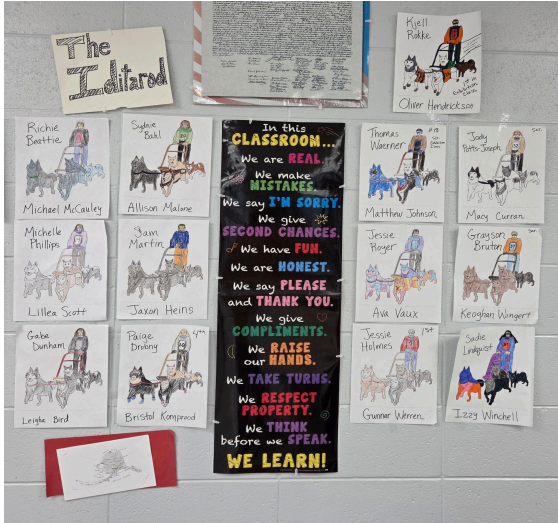 The
Iditarod
Kjell
Rokke
1st in
Exhibition
Class
Oliver Hendrickson
Richie
Beattie
Michael McCauley
Sydnie
Bahl
Allison Malone
Michelle
Phillips
Lillea Scott
Sam
Martin
Jaxon Heins
Gabe
Dunham
Leigha Bird
Paige
Drobny
4th
Bristol Komprood
In this
CLASSROOM...
We are REAL.
We make
MISTAKES.
We say I'M SORRY.
We give
SECOND CHANCES.
We have FUN.
We are HONEST.
We say PLEASE
and THANK YOU.
We give
COMPLIMENTS.
We RAISE
our HANDS.
We TAKE TURNS.
We RESPECT
PROPERTY.
We THINK
before we SPEAK.
WE LEARN!
Thomas
Waerner
Matthew Johnson
Jody
Potts-Joseph
Scr.
Macy Curran
Jessie
Royer
Ava Vaux
Grayson
Bruton
Scr.
Keoghan Wingert
Jessie
Holmes
1st
Gunnar Werren
Sadie
Lindquist
Izzy Winchell